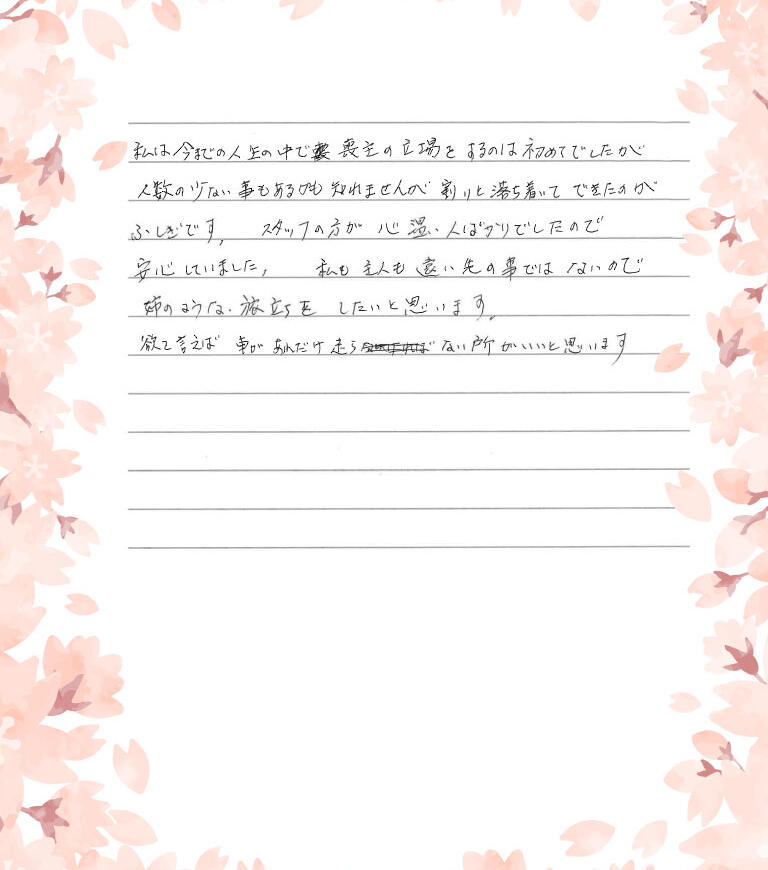 私は今までの人生の中で喪主の立場をするのは初めてでしたが
人数の少ない事もあるかも知れませんが割りと落ち着いてできたのが
ふしぎです。 スタッフの方が心温い人ばかりでしたので
安心していました。 私も主人も遠い先の事ではないので
姉のような旅立ちをしたいと思います。
欲を言えば 車があれだけ走らない所がいいと思います